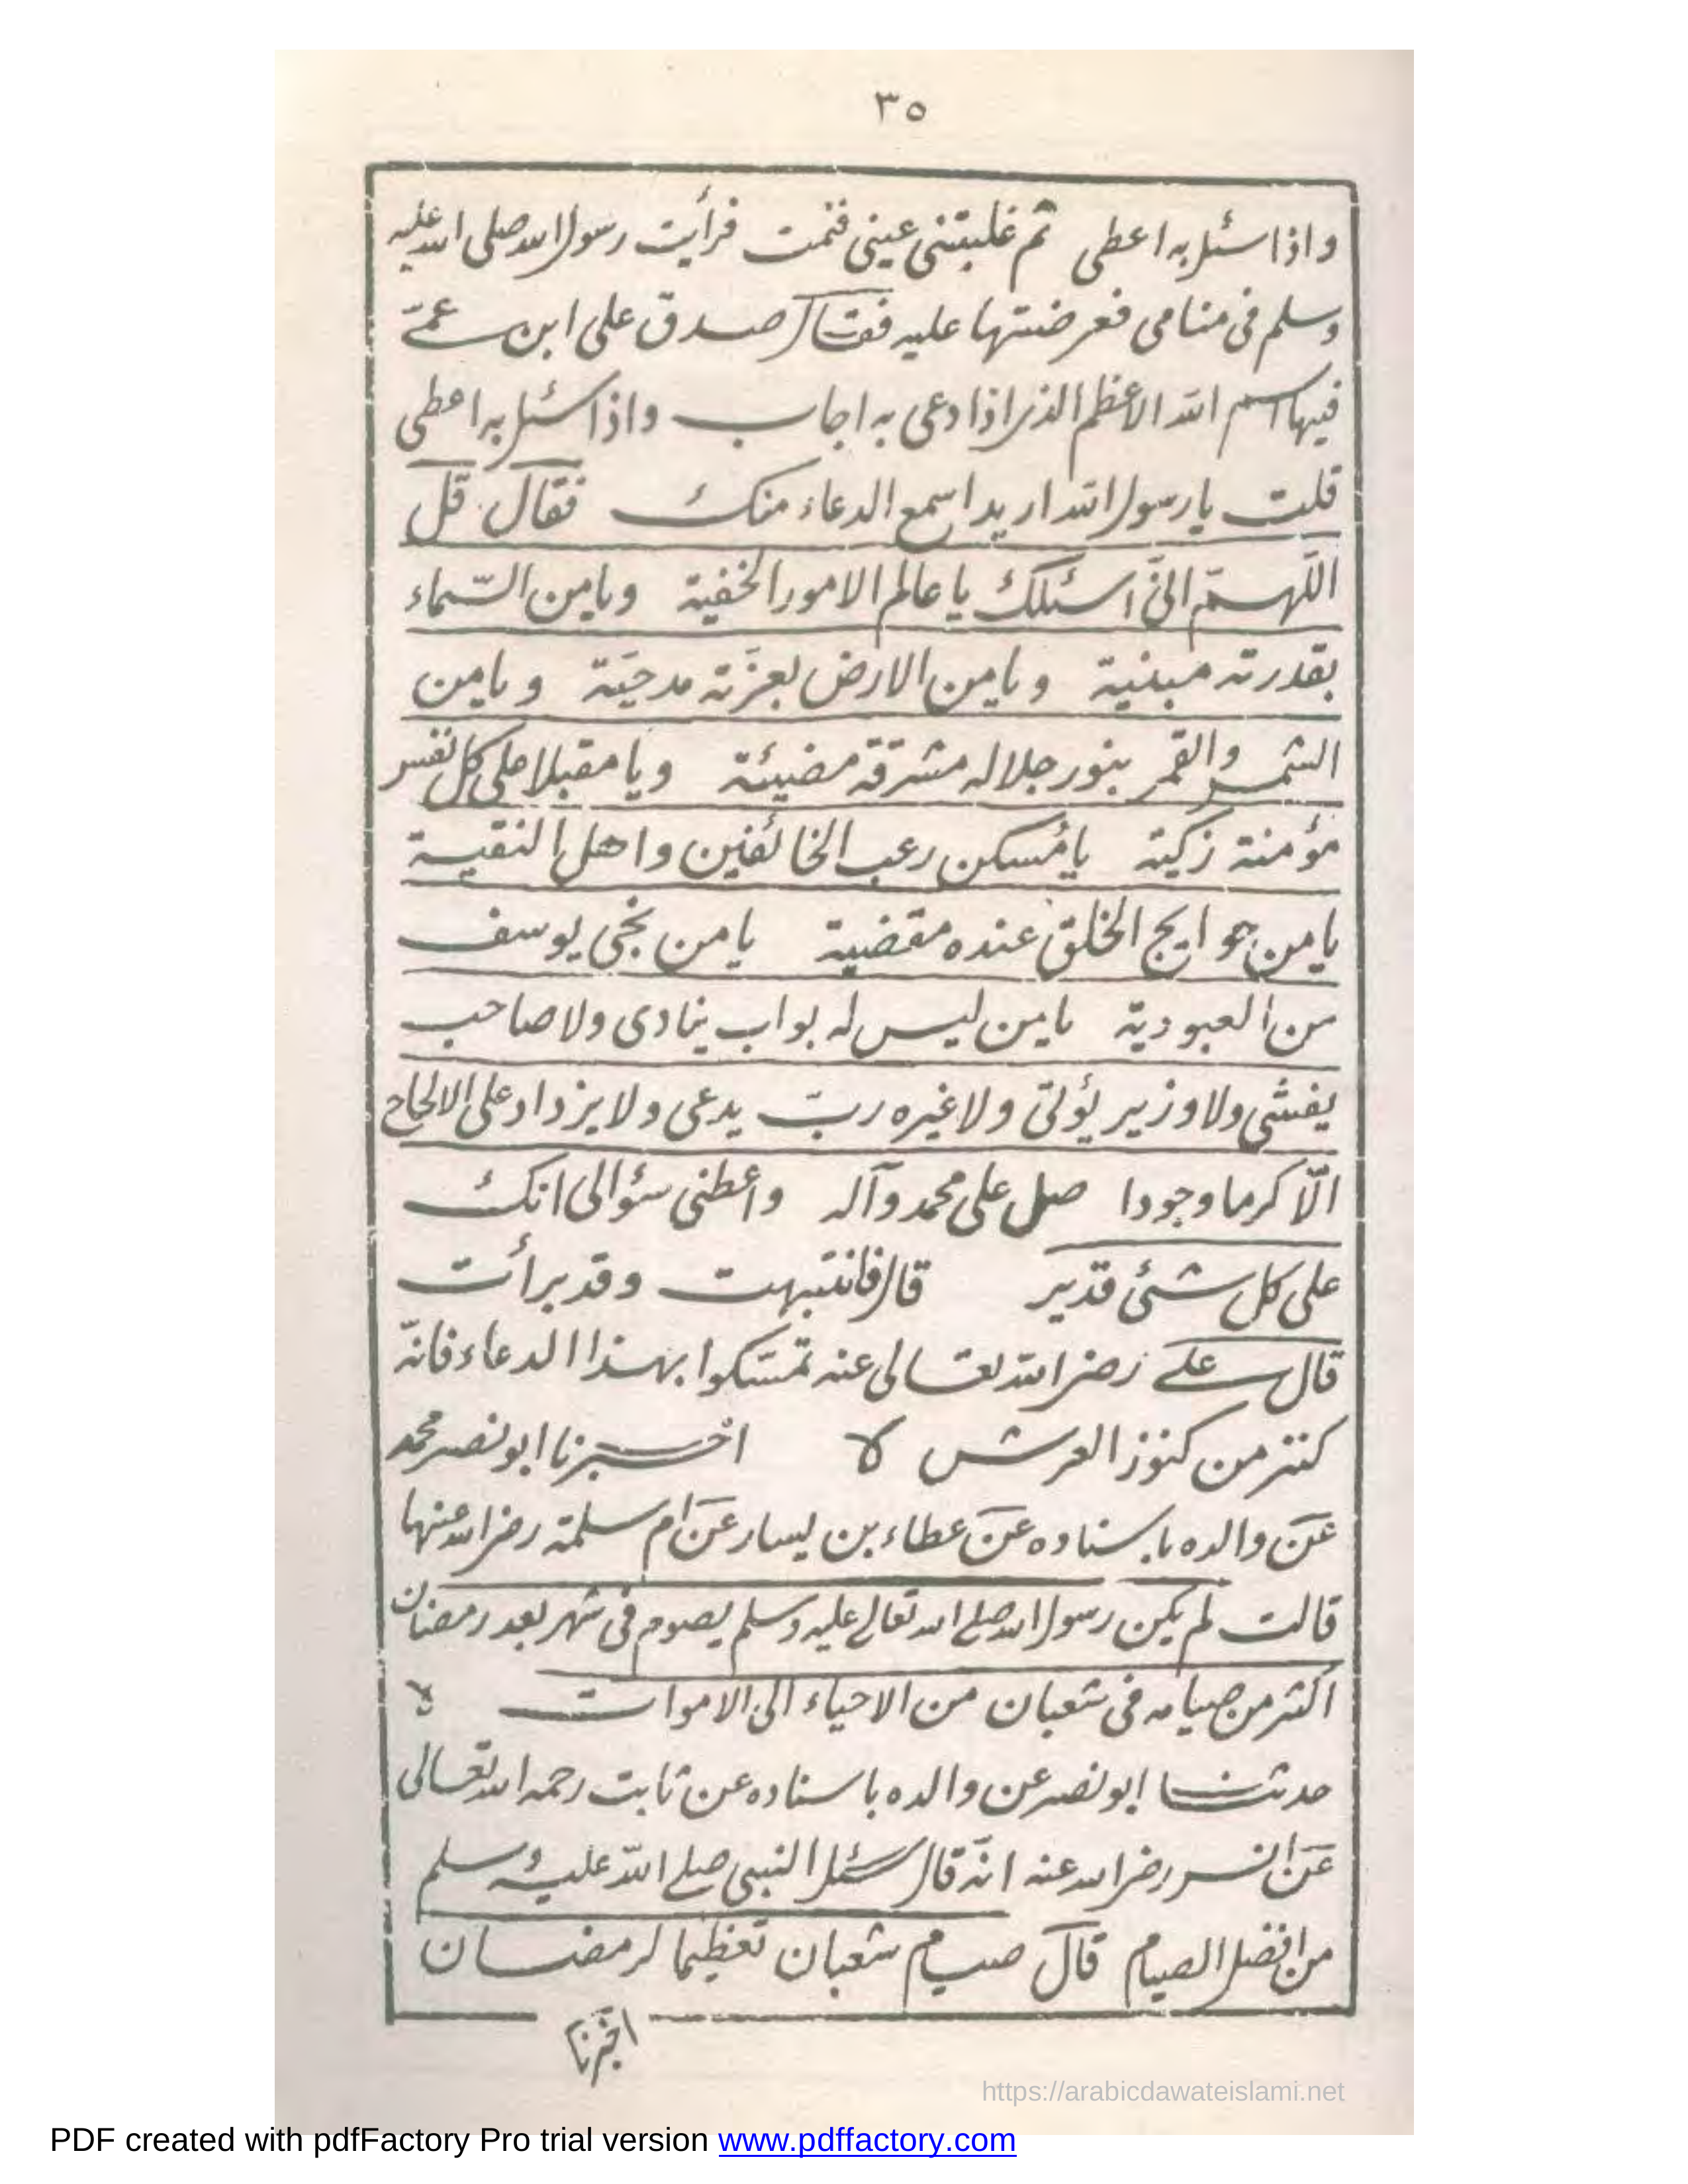 ٣٥
واذا سئل به اعطى ثم غلبتنى عينى فنمت فرأيت رسول الله صلى الله عليه
وسلم فى منامى فعرضتها عليه فقال صدق على ابن عمّى
فيها اسم الله الاعظم الذى اذا دعى به اجاب واذا سئل به اعطى
قلت يا رسول الله اريد اسمع الدعاء منك فقال قل
اللّهمّ انّى اسئلك يا عالم الامور الخفية ويا من السّماء
بقدرته مبنية ويا من الارض بعزّته مدحيّة ويا من
الشمس والقمر بنور جلاله مشرقة مضيئة ويا مقبلا على كل نفس
مؤمنة زكية يا مُسكن رعب الخائفين واهل النقية
يا من حوايج الخلق عنده مقضية يا من نجى يوسف
من العبودية يا من ليس له بواب ينادى ولا صاحب
يغشى ولا وزير يؤتى ولا غيره ربّ يدعى ولا يزداد على الالحاح
الّا كرما وجودا صل على محمد وآله واعطنى سؤالى انك
على كل شئى قدير قال فانتبهت وقد برأت
قال على رضى الله تعالى عنه تمسّكوا بهذا الدعاء فانّه
كنز من كنوز العرش لا اخبرنا ابو نصر محمد
عن والده باسناده عن عطاء بن يسار عن ام سلمة رضى الله عنها
قالت لم يكن رسول الله صلى الله تعالى عليه وسلم يصوم فى شهر بعد رمضان
اكثر من صيامه فى شعبان من الاحياء الى الاموات لا
حدثنا ابو نصر عن والده باسناده عن ثابت رحمه الله تعالى
عن انس رضى الله عنه انّه قال سئل النبى صلى الله عليه وسلم
من افضل الصيام قال صيام شعبان تعظيما لرمضان
اخبرنا
https://arabicdawateislami.net
PDF created with pdfFactory Pro trial version www.pdffactory.com